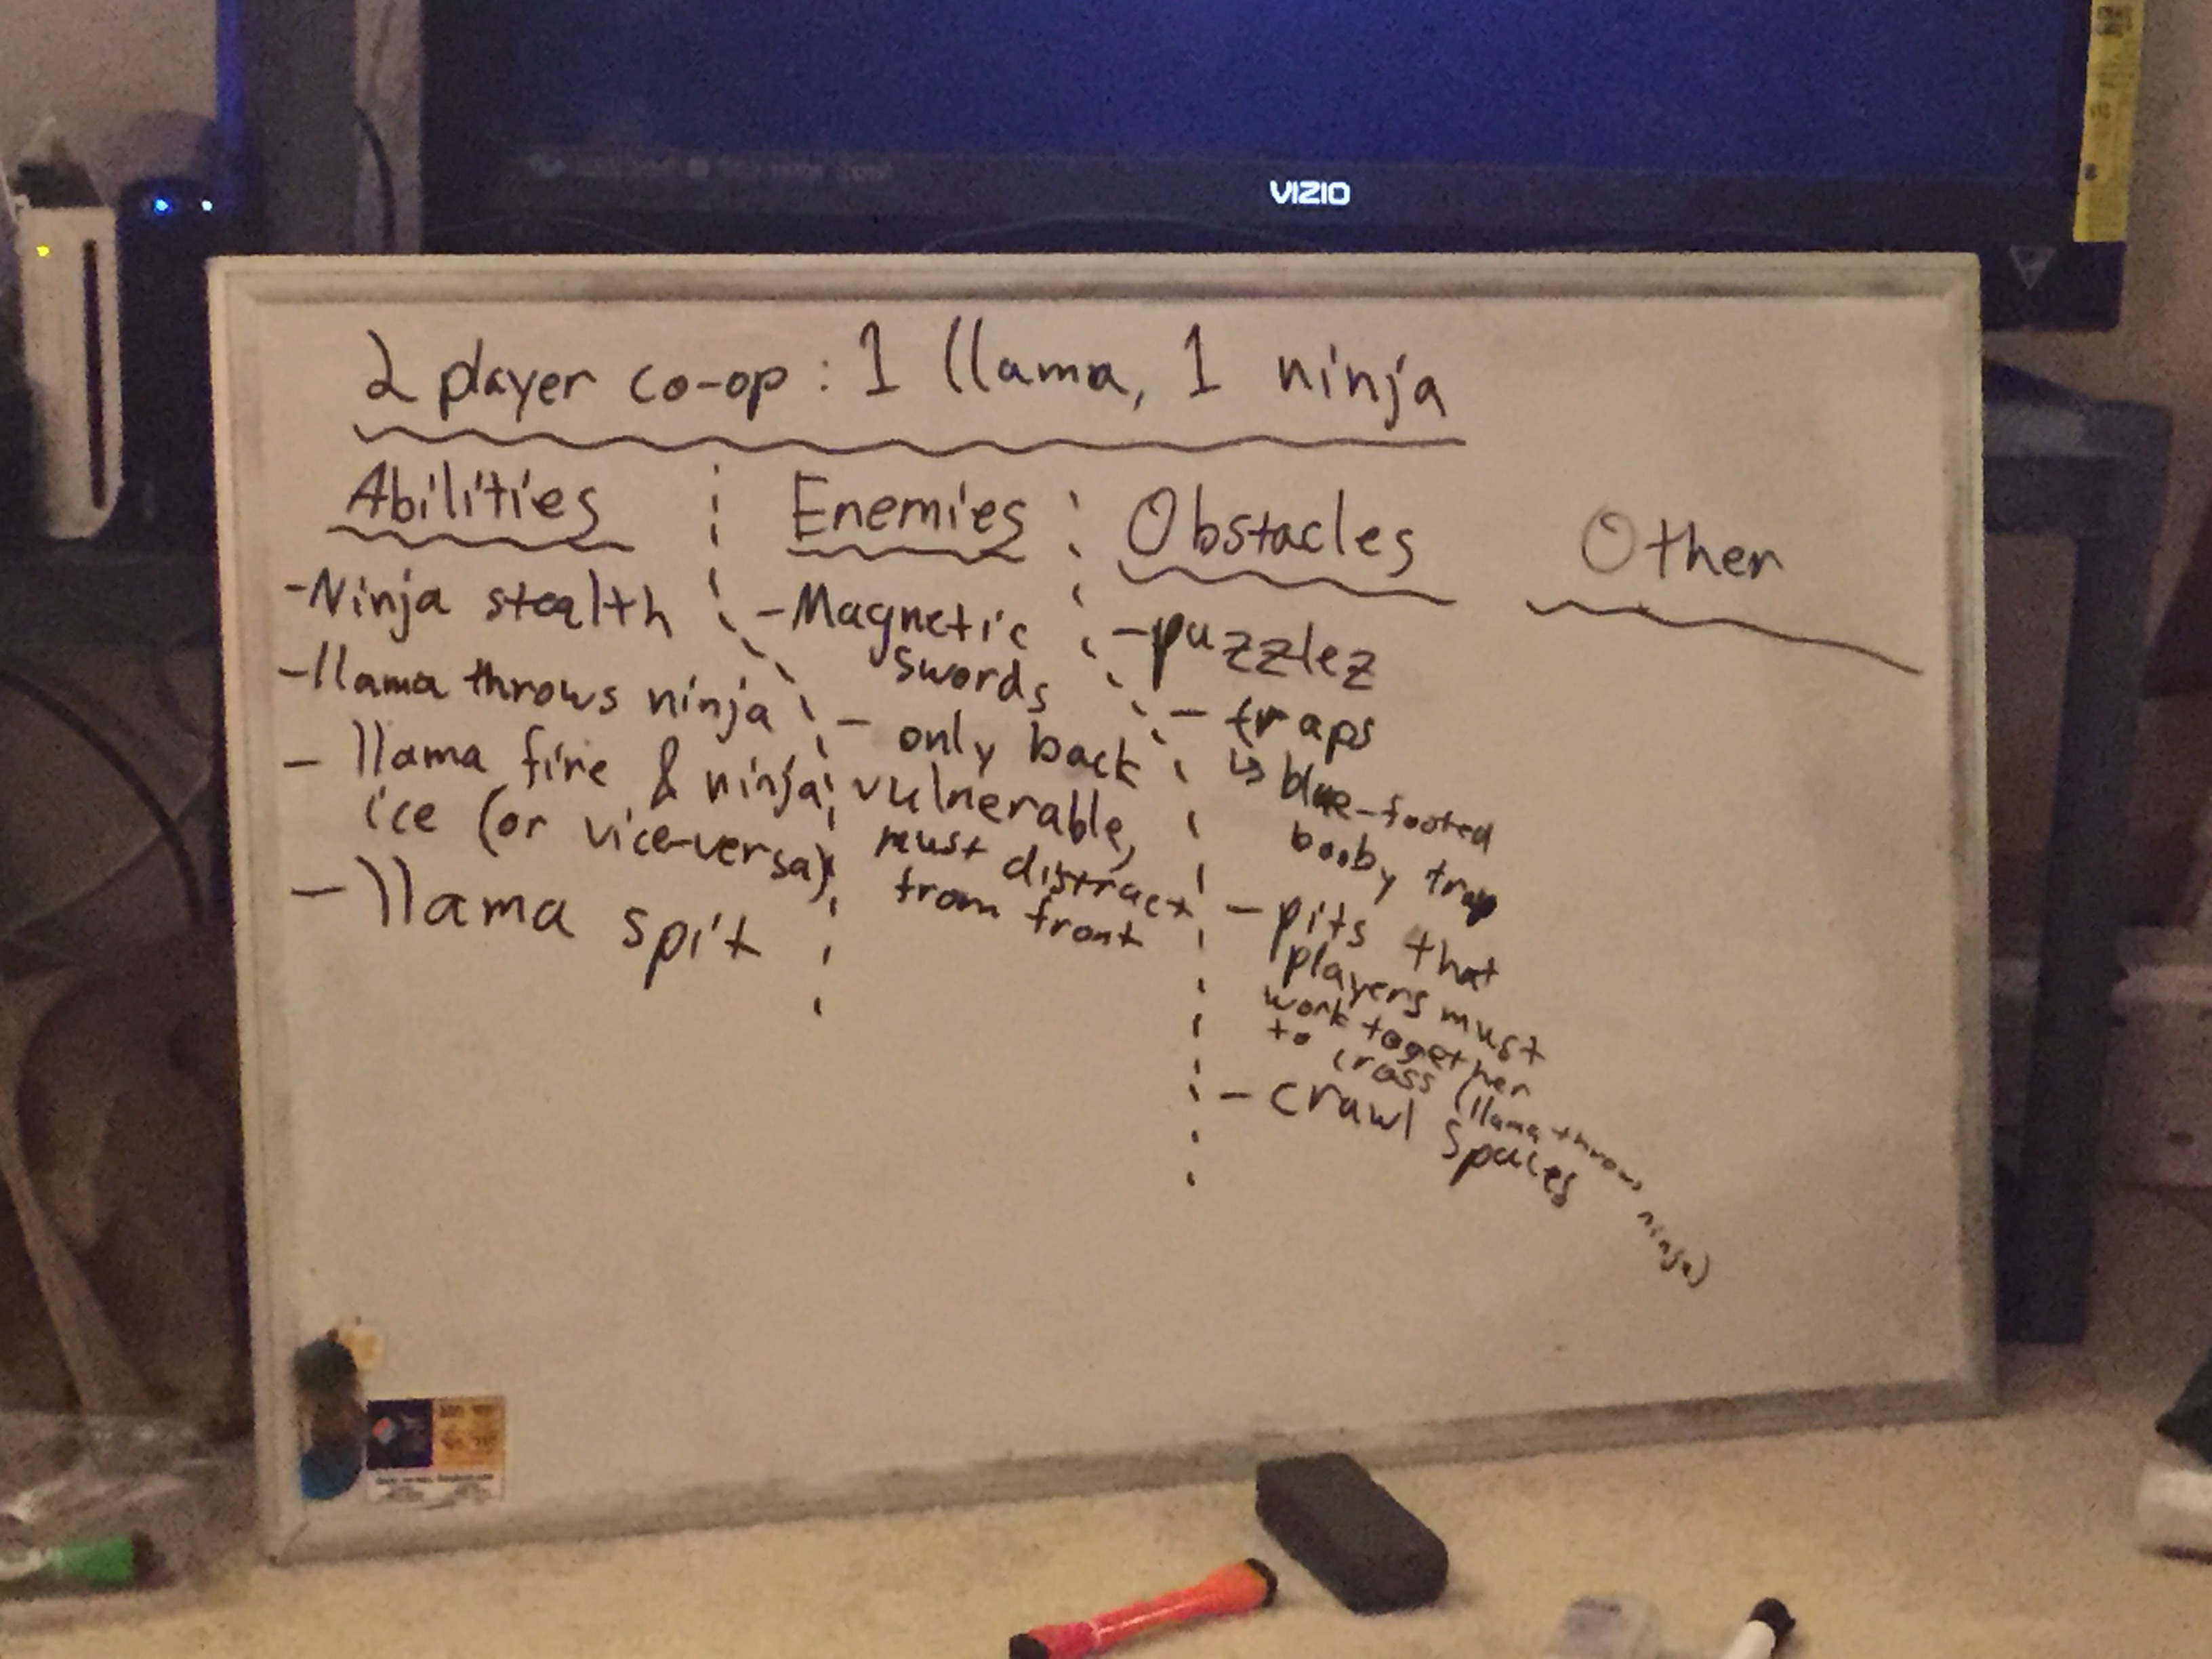 VIZIO
2 player co-op: 1 llama, 1 ninja
Abilities
-Ninja stealth
-llama throws ninja
- llama fire & ninja
ice (or vice-versa)
- llama spit
Enemies
-Magnetic
swords
- only back
vulnerable,
must distract
from front
Obstacles
-puzzlez
- traps
↳ blue-footed
booby trap
-pits that
players must
work together
to cross (llama throws ninja)
- crawl spaces
Other